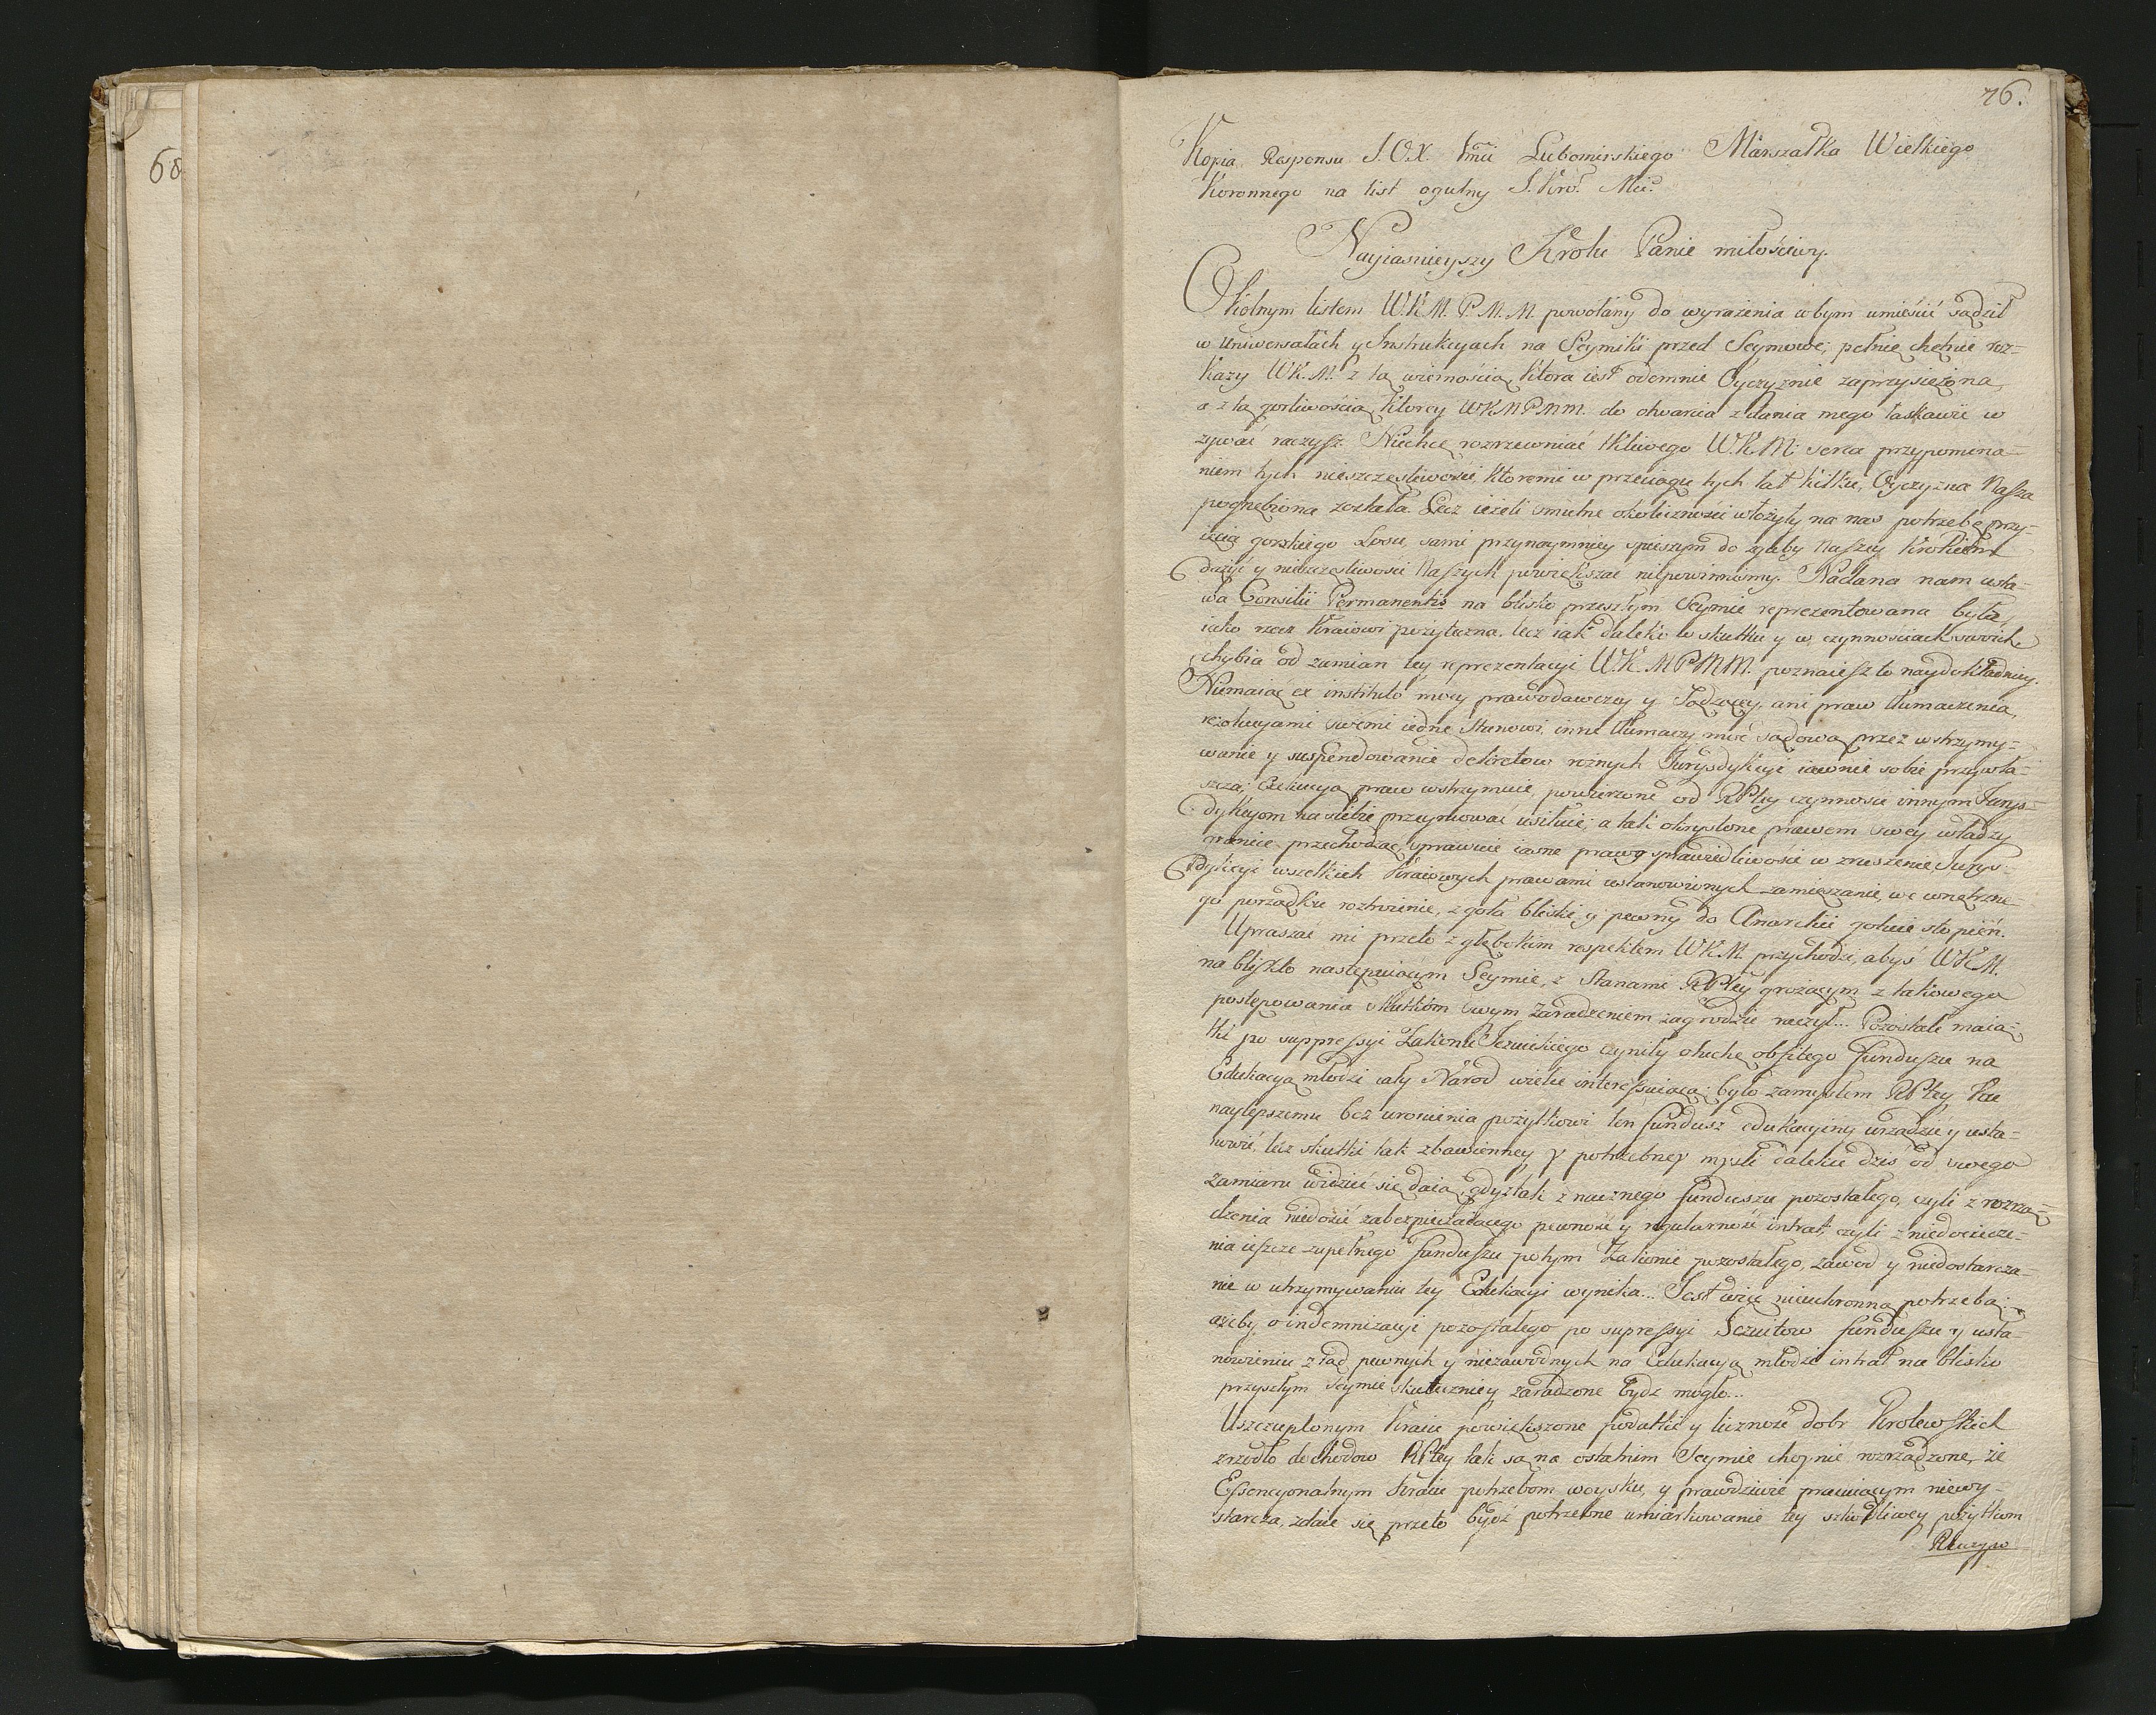 76.
68
Kopia Responsu J.O.X. Jmci Lubomirskiego Marszałka Wielkiego
Koronnego na list ogulny J. Kro. Mci.
Nayiasnieyszy Krolu Panie miłościwy.
Okolnym listem W.K.M. P.M.M. powołany do wyrażenia cobym umieścić sądził
w Uniwersałach y Instrukcyach na Seymiki przed Seymowe; pełnię chętnie roz-
kazy W.K.M. z tą wiernością, ktora iest odemnie Oyczyznie zaprzysiężona,
a z tą gorliwością, ktorey WKMPMM. do otwarcia zdania mego łaskawie w
zywać raczysz. Niechcę rozrzewniać tkliwego W.K.M. serca przypomina-
niem tych nieszczęsliwości, ktoremi w przeciągu tych lat kilku, Oyczyzna Nasza
pognębiona została. Lecz ieżeli smutne okoliczności włożyły na nas potrzebę przy-
ięcia gorzkiego Losu, sami przynaymniey spiesznym do zguby Naszey krokiem
dążyć y nieszczęsliwości Naszych powiększać niepowinnismy. Nadana nam usta-
wa Consilii Permanentis na blisko przeszłym Seymie reprezentowana była,
iako rzecz Kraiowi pożyteczna, lecz iak daleko w skutku y w czynnościach swoich
chybia od zamian tey reprezentacyi W.K.MPMM. poznaiesz to naydokładniey.
Niemaiąc ex instituto mocy prawodawczey y Sądzącey, ani praw tłumaczenia,
rezolucyami swemi iedne Stanowi, inne tłumaczy, moc sądową przez wstrzymy-
wanie y suspendowanie dekretow rożnych Jurysdykcyi iawnie sobie przywła-
szcza; Exekucyą praw wstrzymuie, powierzone od RPltey czynności innym Jurys-
dykcyom na siebie przeymować usiłuie; a tak okryslone prawem swey władzy
granice przechodząc, sprawuie iasne prawo sprawiedliwości w zruszenie Jurys-
dykcyi wszelkich Kraiowych prawami ustanowionych zamięszanie, we wnętrzne-
go porządku roztroienie, zgoła bliski y pewny do Anarchii gotuie stopień.
Upraszać mi przeto z głębokim respektem WKM. przychodzi, abyś WKM.
na blisko następuiącym Seymie, z Stanami RPltey grożącym z takowego
postępowania skutkom swym zaradzeniem zagrodzić raczył... Pozostałe maią-
tki po suppressyi Zakonu Jezuickiego czyniły otuchę obfitego funduszu na
Edukacyą młodzi cały Narod wielce interessuiącą; było zamysłem RPltey ku
naylepszemu bez uronienia pożytkowi ten fundusz edukacyiny urządzić y usta-
nowić, lecz skutki tak zbawienney y potrzebney mysli dalekie dziś od swego
zamiaru widzieć się daią, gdyż tak z nacznego funduszu pozostałego, czyli z rozrzą-
dzenia niedosić zabezpieczaiącego pewność y regularność intrat, czyli z niedocieczе-
nia ieszcze zupełnego funduszu po tym Zakonie pozostałego, zawod y niedostarcza-
nie w utrzymywaniu tey Edukacyi wynika... Jest więc nieuchronna potrzeba;
ażeby o indemnizacyi pozostałego po supressyi Jezuitow funduszu y usta-
nowieniu z tąd pewnych y niezawodnych na Edukacyą młodzi intrat na blisko
przyszłym Seymie skuteczniey zaradzone bydz mogło...
Uszczuplonym Kraiu powiększone podatki y liczność dobr Krolewskich
zrzodło dochodow RPltey tak są na ostatnim Seymie choynie rozrządzone, że
Essencyonalnym Kraiu potrzebom woysku, y prawdziwie pracuiącym niewy-
starcza, zdaie się przeto bydź potrzebne umiarkowanie tey szkodliwey pożytkom
Rzeczypo